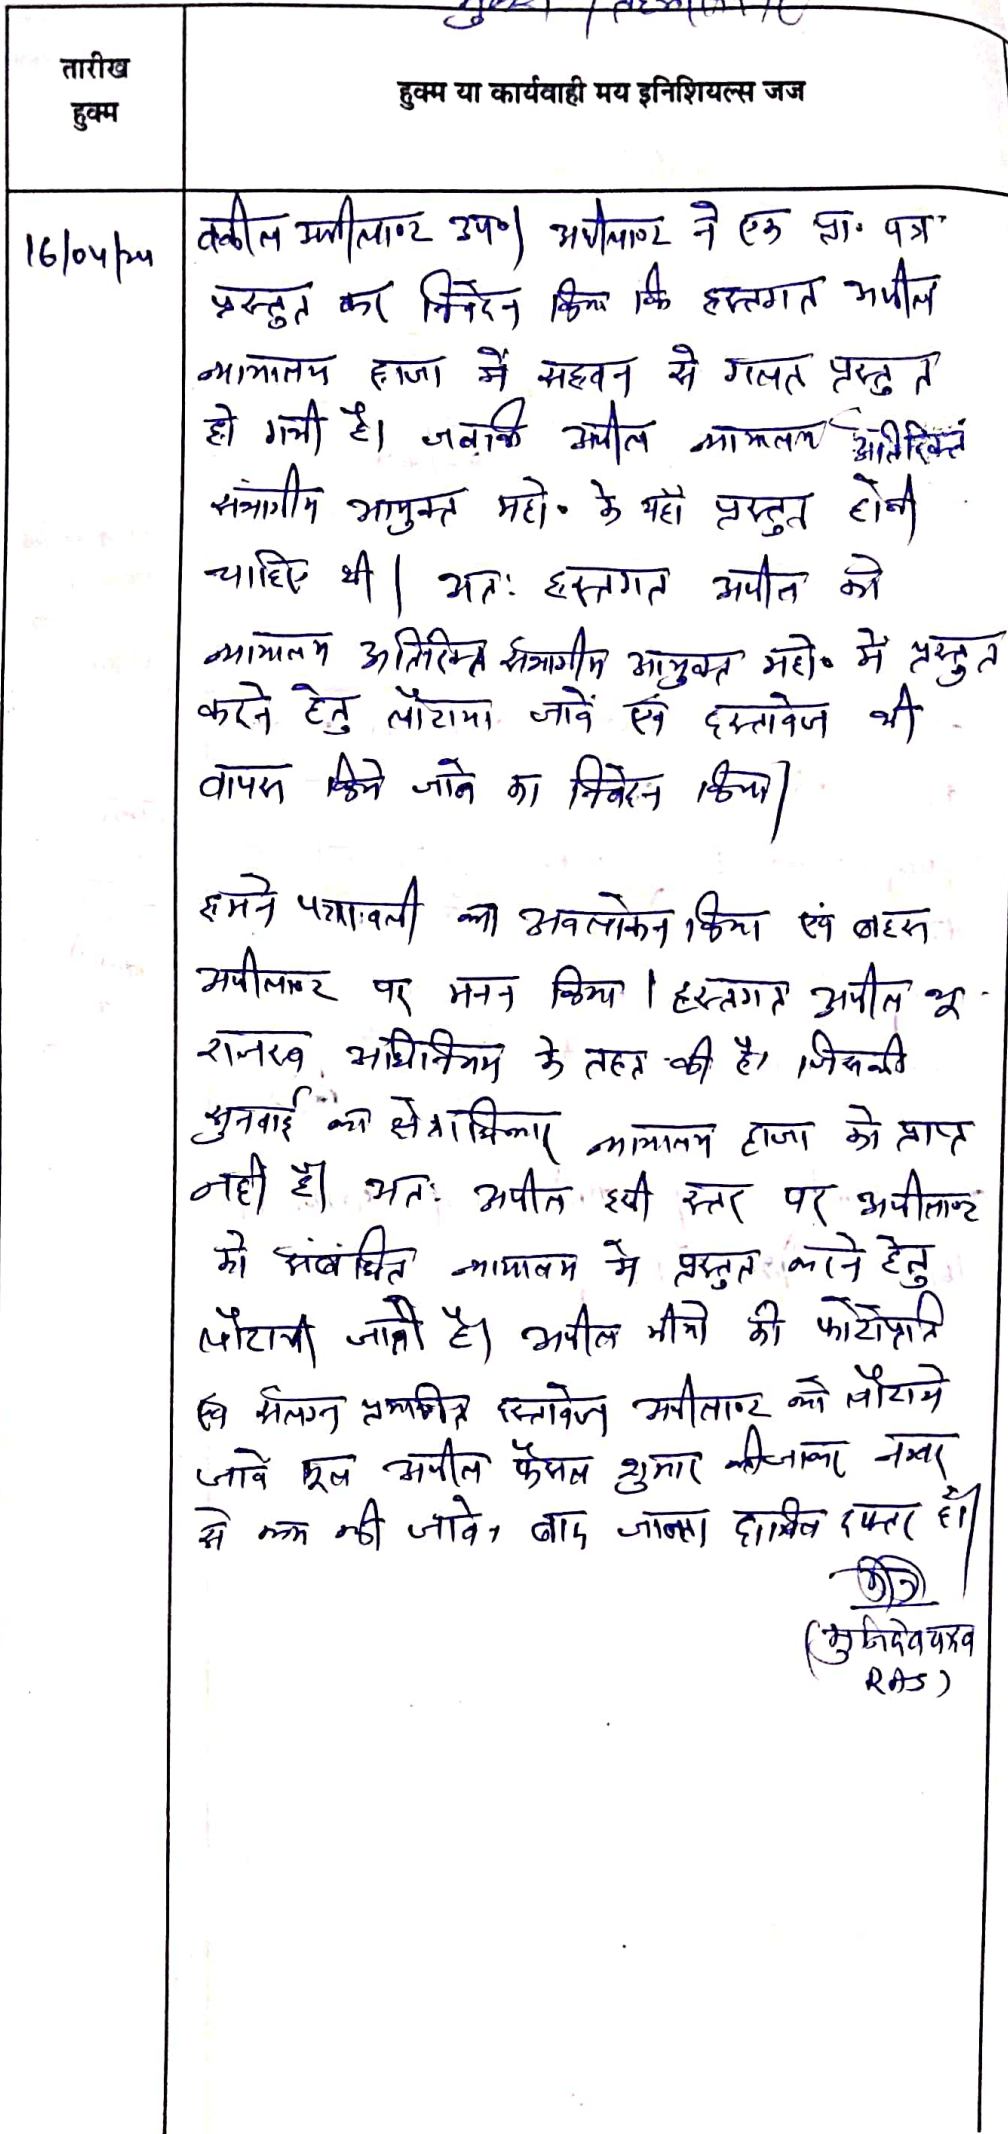 तारीख
हुक्म
हुक्म या कार्यवाही मय इनिशियल्स जज
16/04/24
वकील अपीलाण्ट उप०। अपीलाण्ट ने एक प्रा. पत्र
प्रस्तुत कर निवेदन किया कि हस्तगत अपील
न्यायालय हाजा में सहवन से गलत प्रस्तुत
हो गयी है। जबकि अपील न्यायालय अतिरिक्त
संभागीय आयुक्त महो. के यहाँ प्रस्तुत होनी
चाहिए थी। अतः हस्तगत अपील को
न्यायालय अतिरिक्त संभागीय आयुक्त महो. में प्रस्तुत
करने हेतु लौटाया जावें एवं दस्तावेज भी
वापस किये जाने का निवेदन किया।
हमने पत्रावली का अवलोकन किया एवं बहस
अपीलाण्ट पर मनन किया। हस्तगत अपील भू-
राजस्व अधिनियम के तहत की है। जिसकी
सुनवाई का क्षेत्राधिकार न्यायालय हाजा को प्राप्त
नहीं है। अतः अपील इसी स्तर पर अपीलाण्ट
को संबंधित न्यायालय में प्रस्तुत करने हेतु
लौटायी जाती है। अपील मीमो की फोटोप्रति
एवं संलग्न प्रमाणित दस्तावेज अपीलाण्ट को लौटाये
जावे मूल अपील फैसल शुमार की जाकर नम्बर
से कम की जावे, बाद जाब्ता दाखिल दफ्तर हो।
(मुनिदेव यादव
RAS)